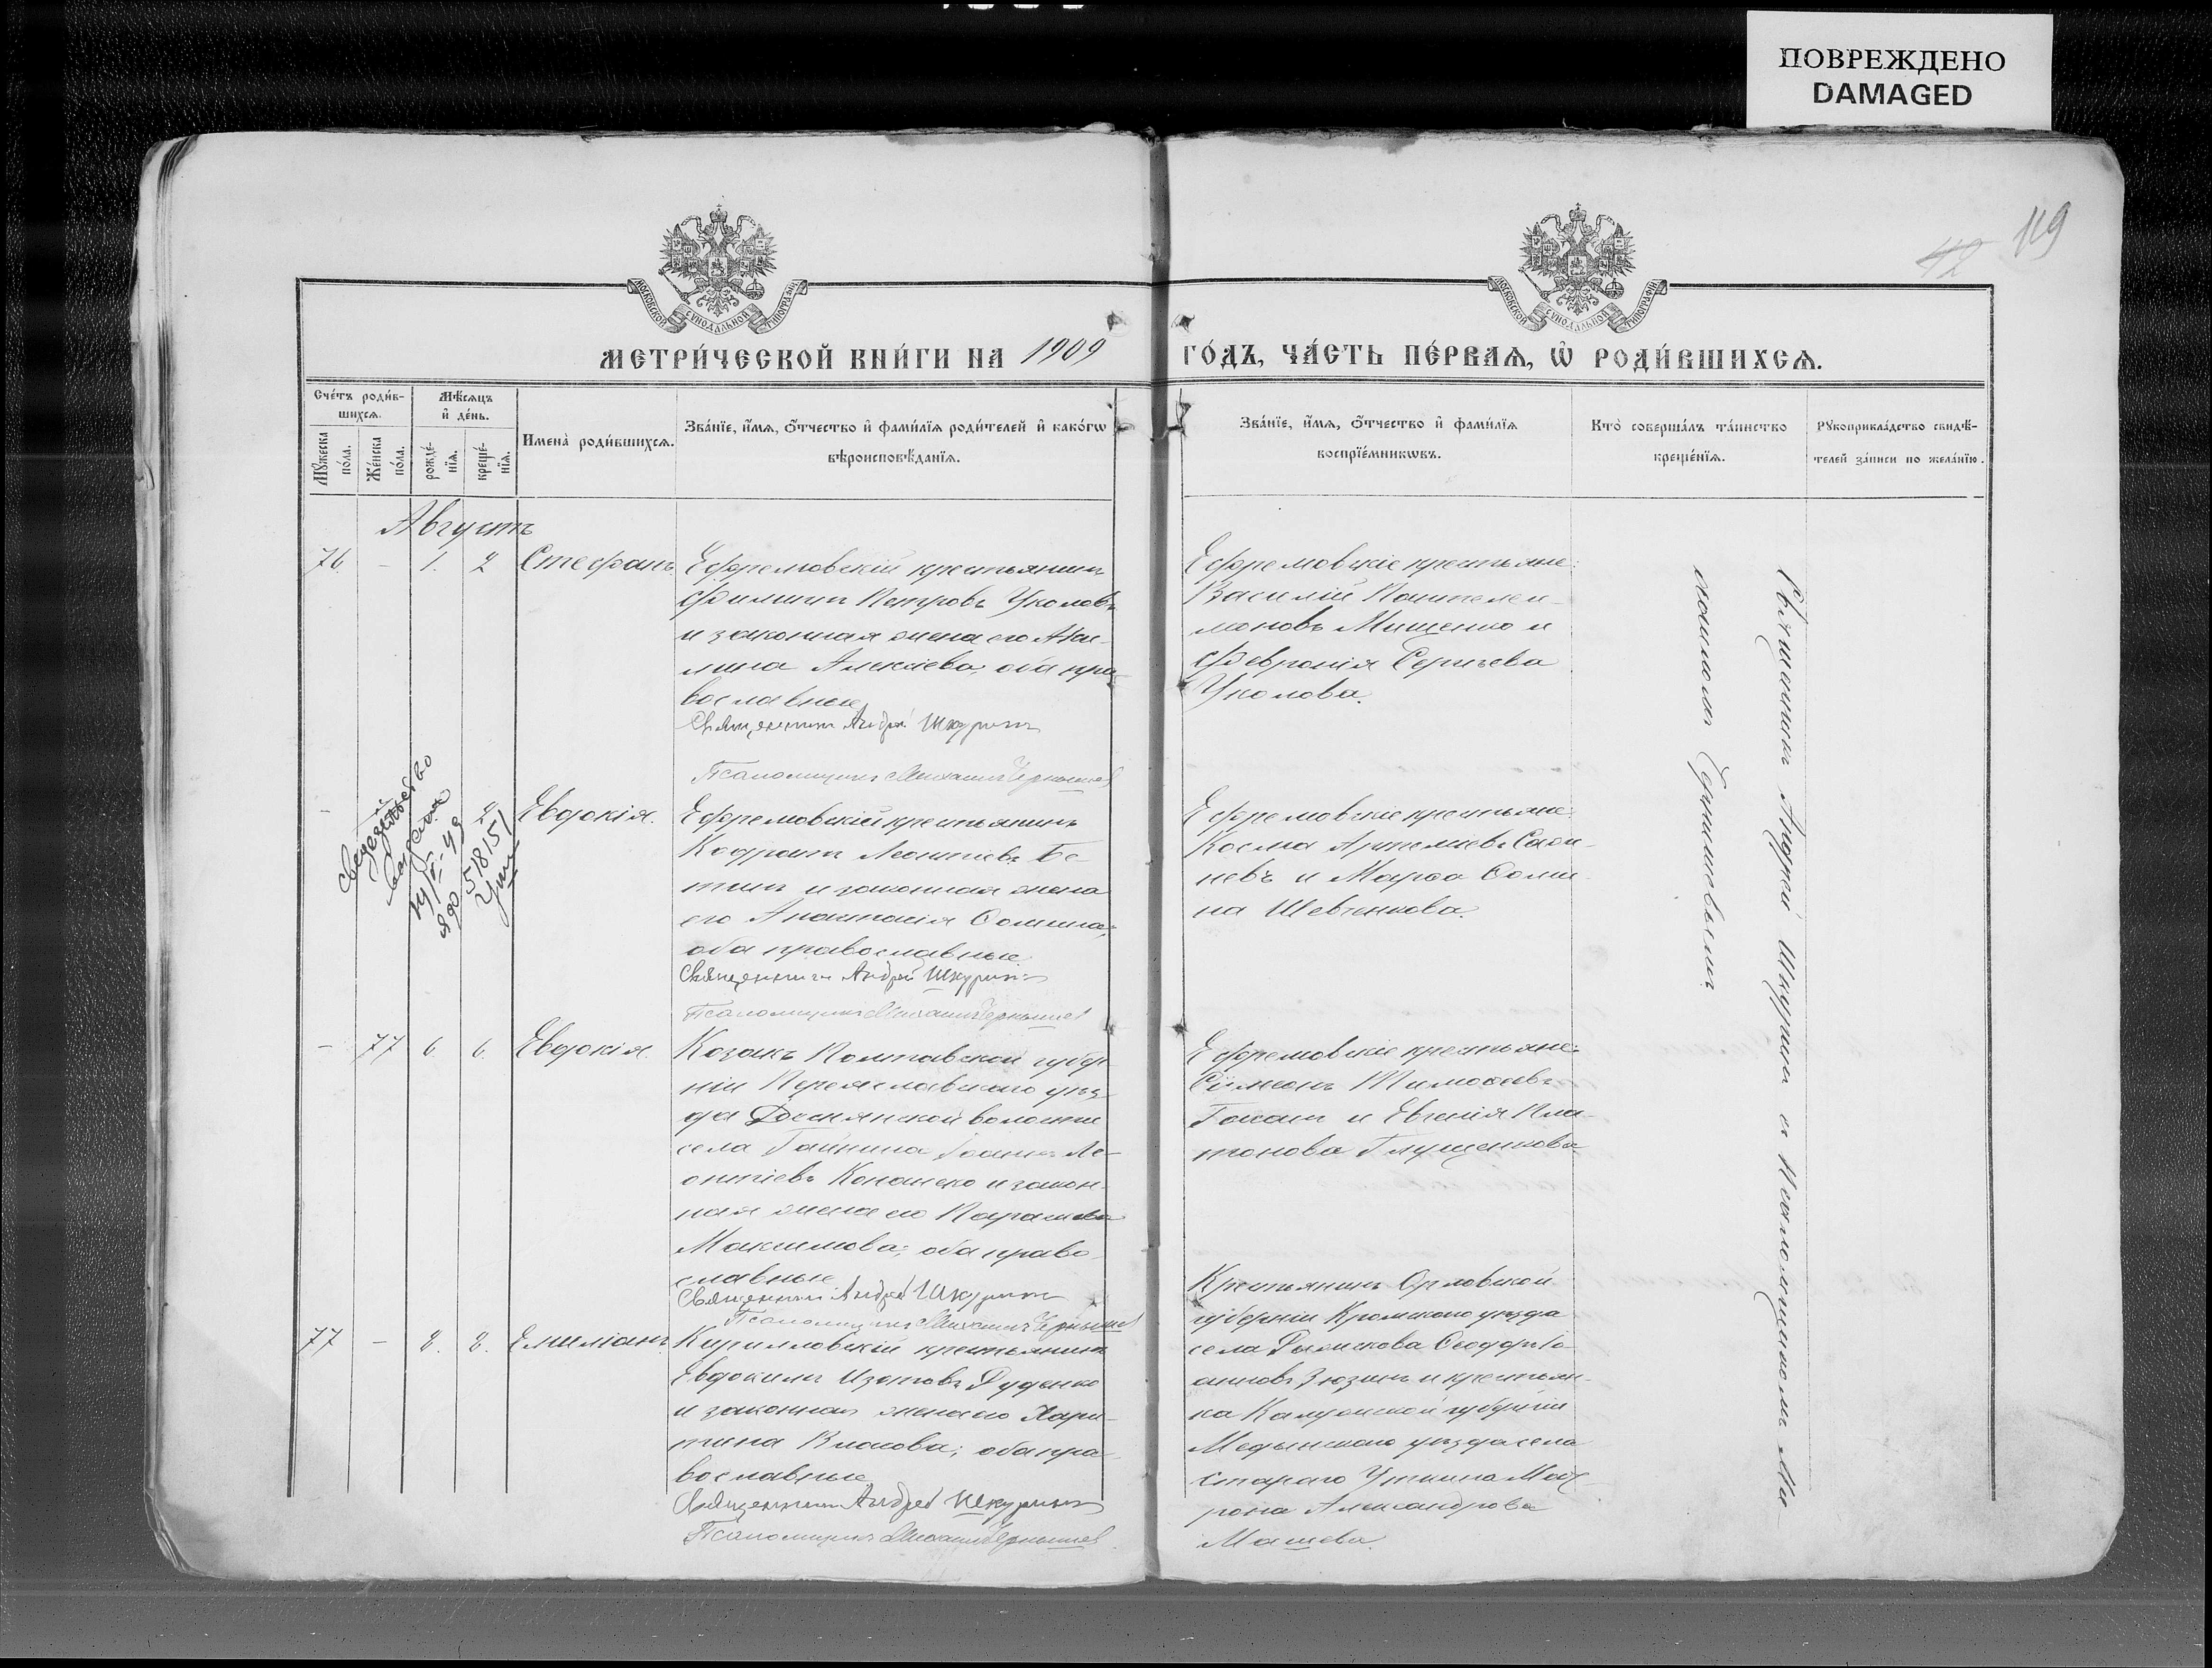 ПОВРЕЖДЕНО
DAMAGED
119
42
МОСКОВСКОЙ СѴНОДАЛЬНОЙ ТИПОГРАФІИ
МОСКОВСКОЙ СѴНОДАЛЬНОЙ ТИПОГРАФІИ
МЕТРИ́ЧЕСКОЙ КНИ́ГИ НА 1909
ГО́ДЪ, ЧА́СТЬ ПЕ́РВАѦ, Ѡ РОДИ́ВШИХСѦ.
Сче́тъ роди́в-
шихсѧ.
Мѣ́сѧцъ
и де́нь.
Мꙋ́жеска
по́ла.
Же́нска
по́ла.
рожде́-
нїѧ.
креще́-
нїѧ.
Имена̀ роди́вшихсѧ.
Зва́нїе, и́мѧ, ѻ́тчество и фами́лїѧ роди́телей и како́гѡ
вѣроисповѣ́данїѧ.
Зва́нїе, и́мѧ, ѻ́тчество и фами́лїѧ
воспрїе́мникѡвъ.
Кто̀ соверша́лъ та́инство
креще́нїѧ.
Рꙋкоприкла́дство свидѣ́-
телей за́писи по жела́нїю.
Августъ
76. - 1. 2 Стефанъ.
Ефремовскій крестьянинъ
Филиппъ Петровъ Уколовъ
и законная жена его Аки-
лина Алексіева; оба пра-
вославные
Священникъ Андрей Шкуринъ
Псаломщикъ Михаилъ Чернышев
Ефремовскіе крестьяне:
Василій Пантелеи-
моновъ Мищенко и
Феврония Сергіева
Уколова.
Свидетельство
выдано
518151
Евдокія.
Ефремовскій крестьянинъ
Кодратъ Леонтіевъ Бе-
тинъ и законная жена
его Анастасія Ѳомина;
оба православные
Священникъ Андрей Шкуринъ
Псаломщикъ Михаилъ Чернышев
Ефремовские крестьяне:
Косма Артеміевъ
невъ и Марѳа Ѳоми-
на Шевченкова.
- 77 6. 6. Евдокія.
Козакъ Полтавской губер
ніи Переяславскаго уѣз-
да волости
села Іоаннъ Ле-
онтіевъ и закон-
ная жена его Параскева
Максимова; оба право-
славные
Священникъ Андрей Шкуринъ
Псаломщикъ Михаилъ Чернышев
Ефремовскіе крестьяне:
Сѵмеонъ Тимоѳеевъ
и Евгенія Пла-
тонова Глущенкова
77 - 8. 8. Емиліанъ.
Кирилловскій крестьянинъ
Евдокимъ Изотовъ Руденко
и законная жена его Хари-
тина Власова; оба пра-
вославные
Священникъ Андрей Шкуринъ
Псаломщикъ Михаилъ Чернышев
Крестьянинъ Орловской
губерніи Кромскаго уѣзда
села Ѳеодоръ Іо-
анновъ Зюзинъ и крестьян-
ка Калужской губерніи
Медынскаго уѣзда села
Стараго Уткина Мат-
рона Александрова
Священникъ Андрей Шкуринъ съ псаломщикомъ Ми-
хаиломъ Чернышевымъ